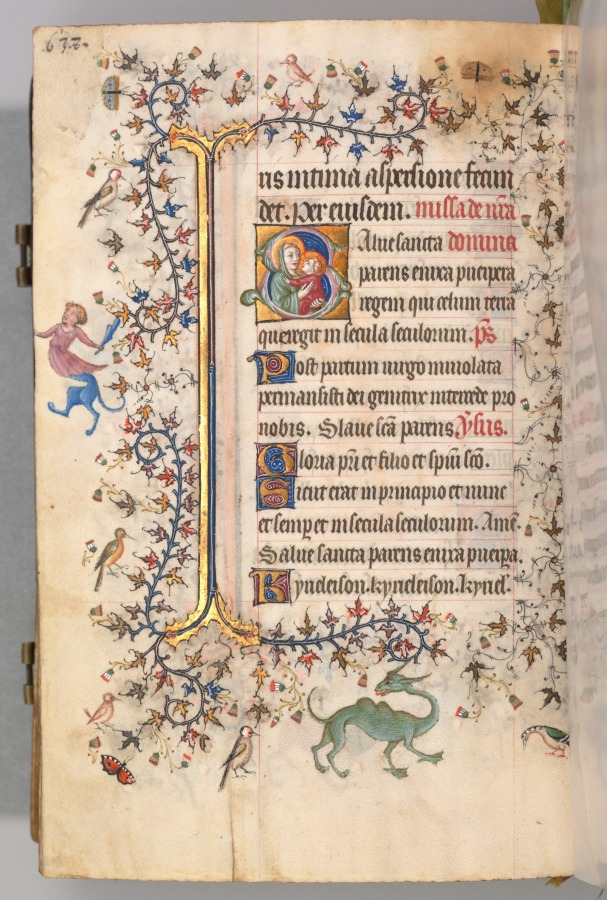 63.z.
ris intima aspersione fecun
det. Per eiusdem. missa de n̄ra
Salue sancta domina
parens enixa puerpera
regem qui celum terrā
que regit in secula seculorum. p̄s
Post partum uirgo inuiolata
permansisti dei genitrix intercede pro
nobis. Salue sc̄a parens ꝟsus.
Gloria pr̄i et filio et spūi sc̄o.
Sicut erat in principio et nunc
et semper et in secula seculorum. Amē.
Salue sancta parens enixa puerpa
Kyrieleison. kyrieleison. kyriel'.